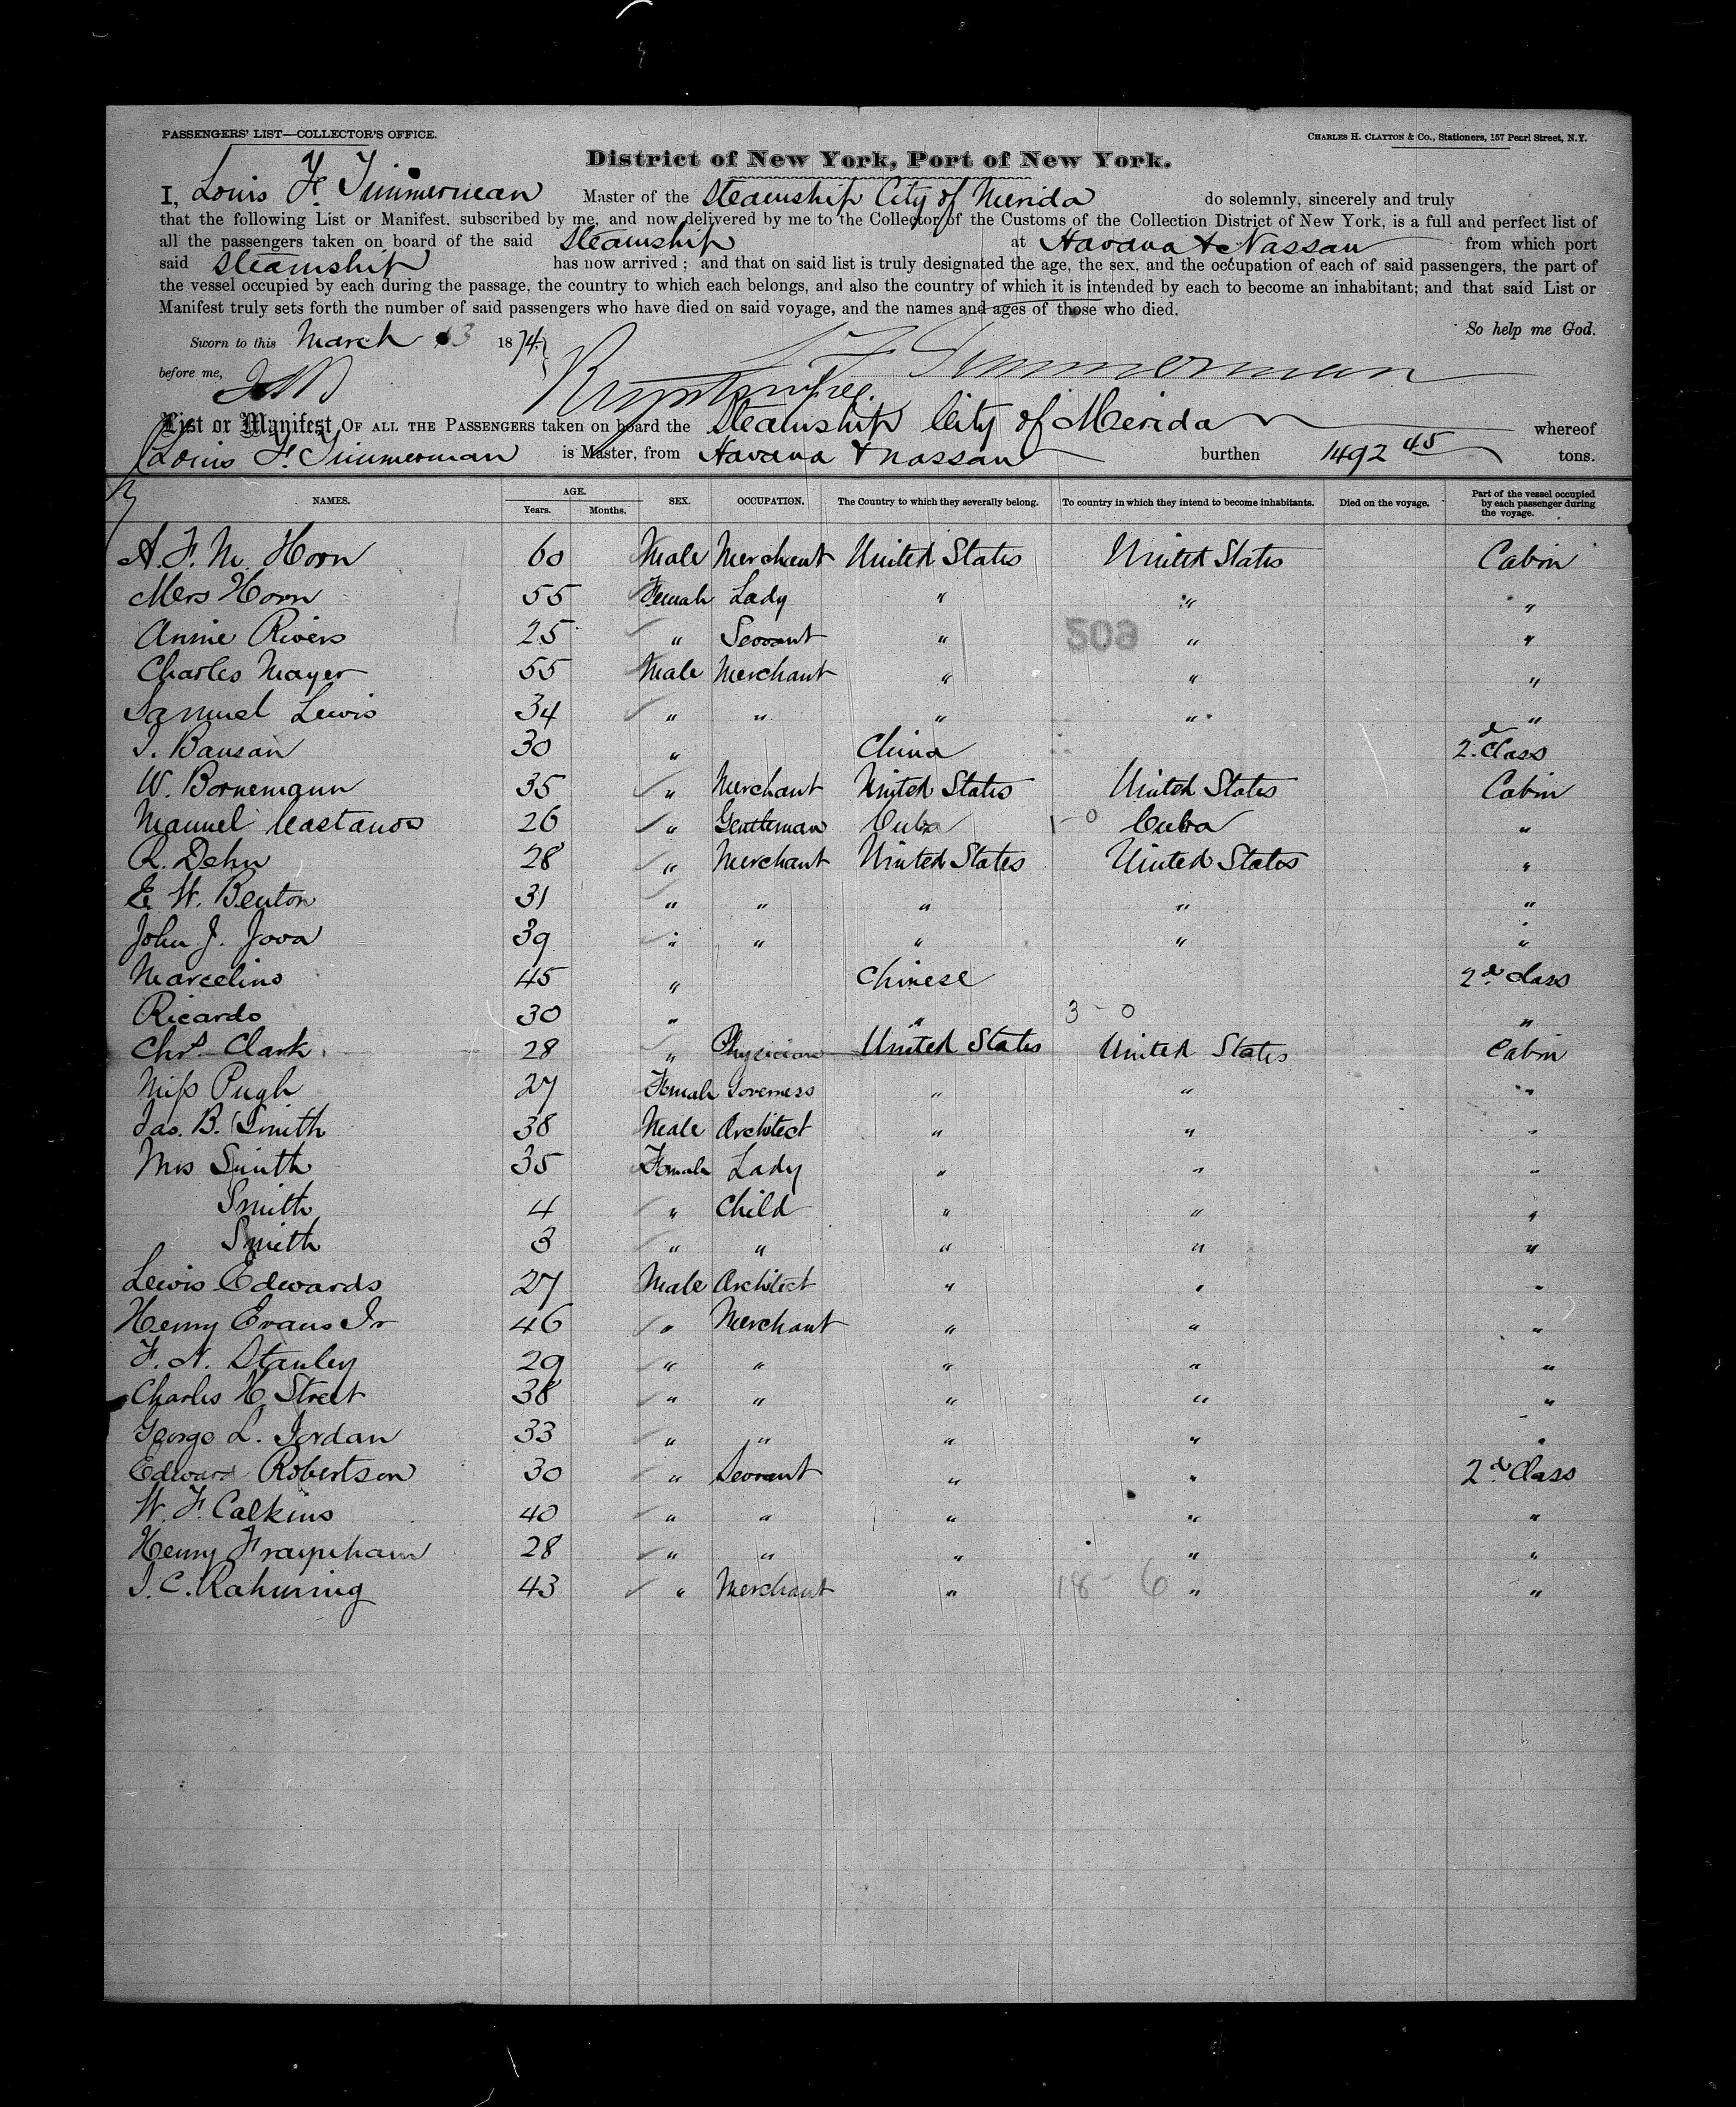 PASSENGERS' LIST—COLLECTOR'S OFFICE.
CHARLES H. CLAYTON & Co., Stationers, 157 Pearl Street, N.Y.
District of New York, Port of New York.
I, Louis F. Timmerman Master of the Steamship City of Merida do solemnly, sincerely and truly
that the following List or Manifest, subscribed by me, and now delivered by me to the Collector of the Customs of the Collection District of New York, is a full and perfect list of
all the passengers taken on board of the said Steamship at Havana & Nassau from which port
said Steamship has now arrived; and that on said list is truly designated the age, the sex, and the occupation of each of said passengers, the part of
the vessel occupied by each during the passage, the country to which each belongs, and also the country of which it is intended by each to become an inhabitant; and that said List or
Manifest truly sets forth the number of said passengers who have died on said voyage, and the names and ages of those who died.
So help me God.
Sworn to this March 13 1874
L F Timmerman
before me,
List or Manifest OF ALL THE PASSENGERS taken on board the Steamship City of Merida whereof
Louis F. Timmerman is Master, from Havana & Nassau burthen 1492 45 tons.
NAMES. AGE. Years. Months. SEX. OCCUPATION. The Country to which they severally belong. To country in which they intend to become inhabitants. Died on the voyage. Part of the vessel occupied by each passenger during the voyage.
A. F. M. Horn 60 Male Merchant United States United States Cabin
Mrs Horn 55 Female Lady " " "
Annie Rivers 25 " Servant " 508 " "
Charles Mayer 55 Male Merchant " " "
Samuel Lewis 34 " " " " "
J. Bausan 30 " China 2d Class
W. Bornemann 35 " Merchant United States United States Cabin
Manuel Castanos 26 " Gentleman Cuba 1-0 Cuba "
R. Dehn 28 " Merchant United States United States "
E. W. Benton 31 " " " " "
John J. Jova 39 " " " " "
Marcelino 45 " Chinese 2d class
Ricardo 30 " " 3-0 "
Chrs Clark 28 " Physician United States United States Cabin
Miss Pugh 27 Female Governess " " "
Jas. B. Smith 38 Male Architect " " "
Mrs Smith 35 Female Lady " " "
Smith 4 " Child " " "
Smith 3 " " " " "
Lewis Edwards 27 Male Architect " " "
Henry Evans Jr 46 " Merchant " " "
F. N. Stanley 29 " " " " "
Charles H Street 38 " " " " "
George L. Jordan 33 " " " " "
Edward Robertson 30 " Servant " " 2d Class
W. F. Calkins 40 " " " " "
Henry 28 " " " " "
J. C. 43 " Merchant " 18-6 " "